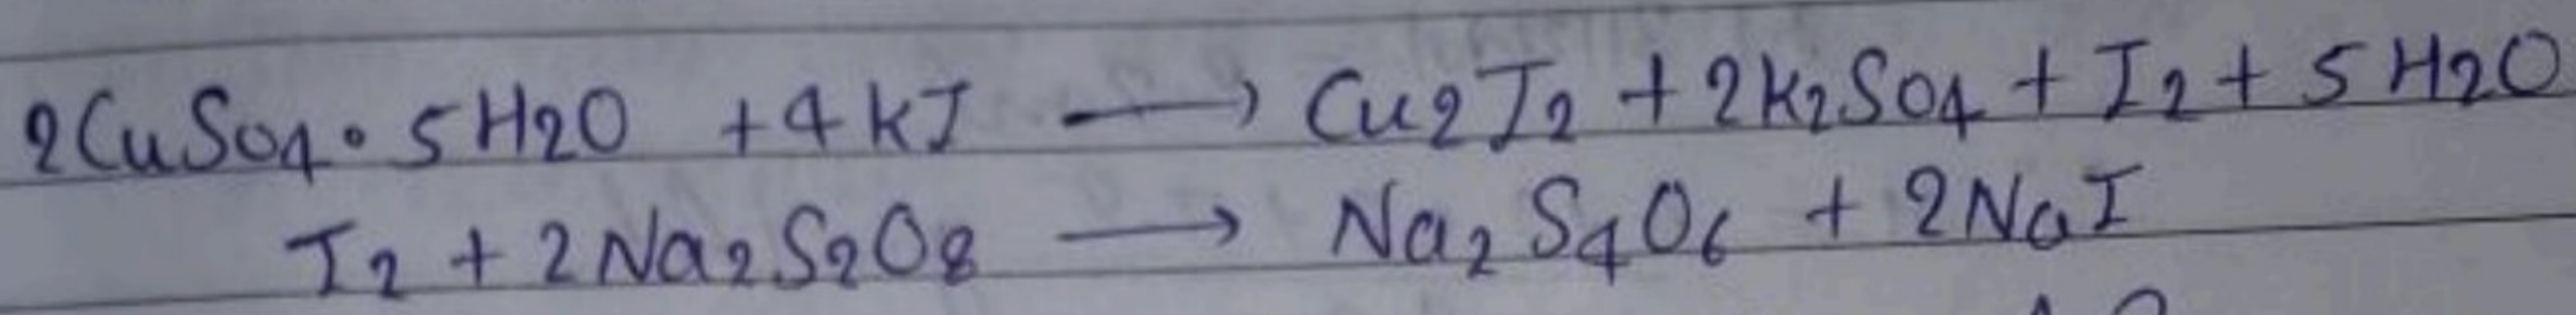 2CuSO4·5H2O + 4KI → Cu2I2 + 2K2SO4 + I2 + 5H2O
I2 + 2Na2S2O8 → Na2S4O6 + 2NaI